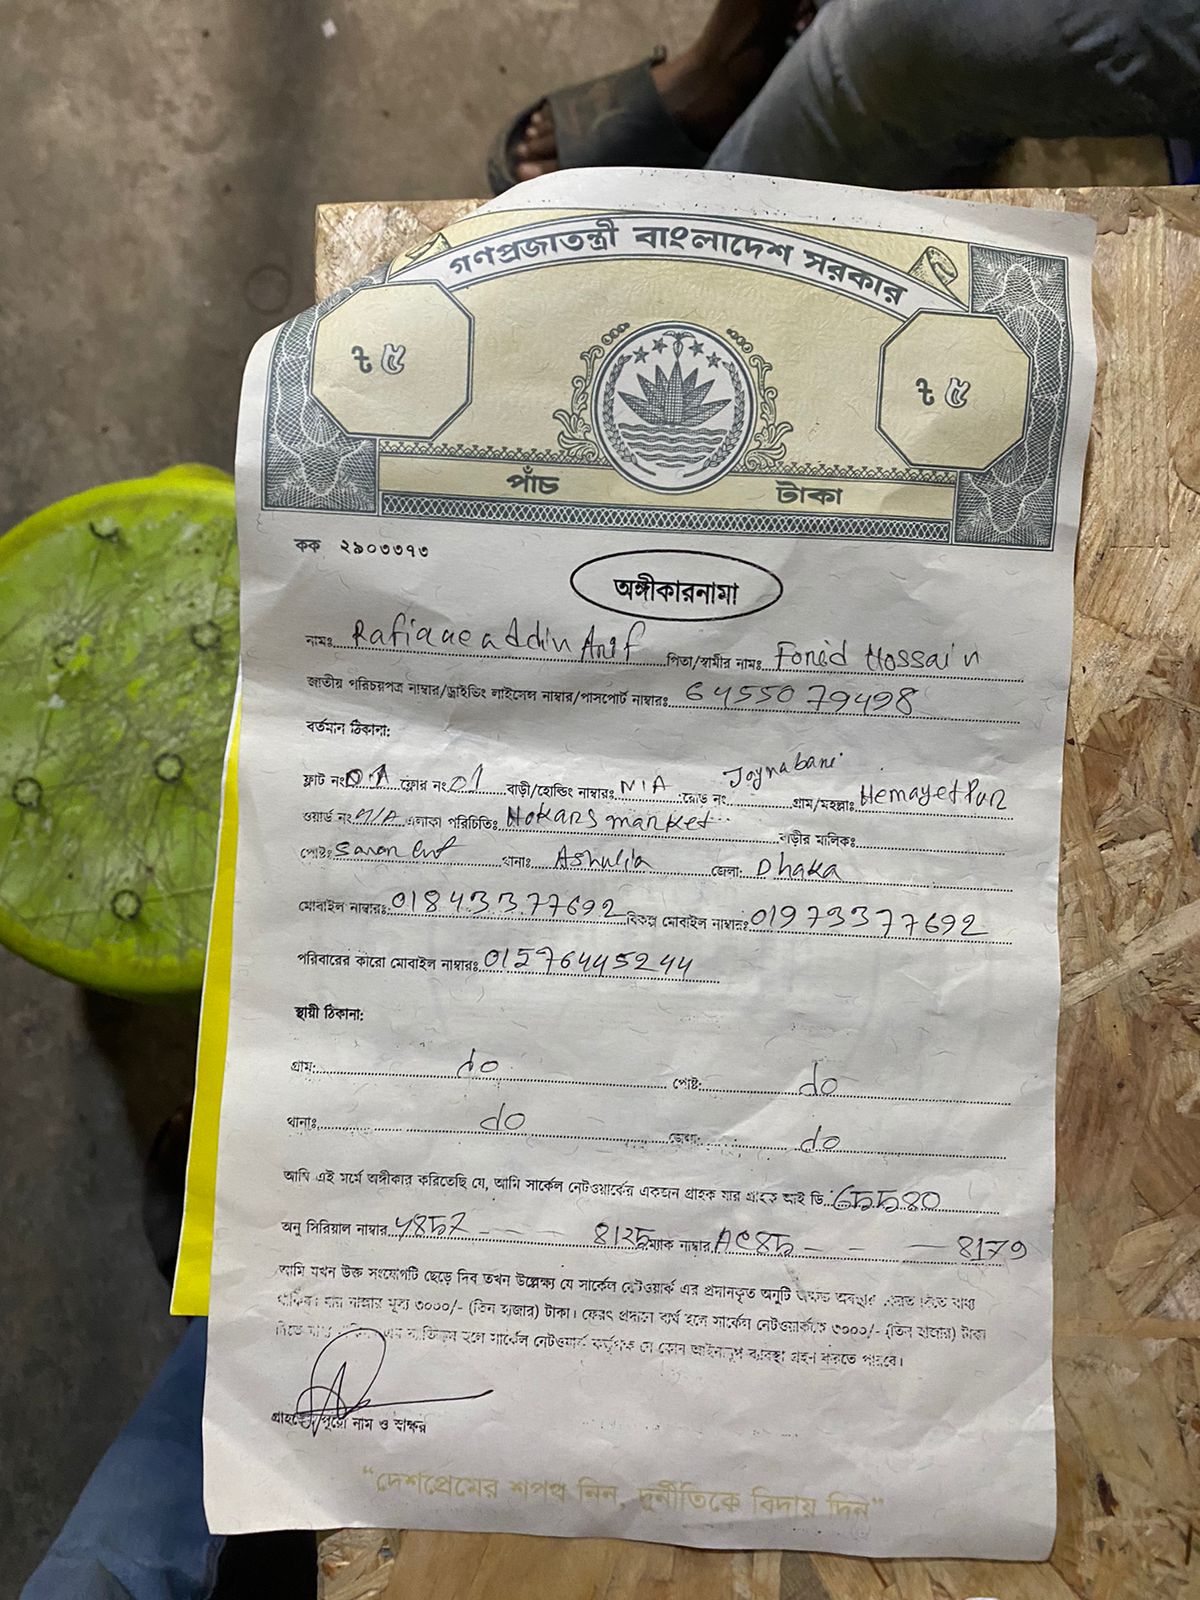 গণপ্রজাতন্ত্রী বাংলাদেশ সরকার
৳ ৫ ৳ ৫
পাঁচ টাকা
কক ২৯০৩৩৭৩
অঙ্গীকারনামা
নামঃ Rafiqueaddin Arif পিতা/স্বামীর নামঃ Forid Hossain
জাতীয় পরিচয়পত্র নাম্বার/ড্রাইভিং লাইসেন্স নাম্বার/পাসপোর্ট নাম্বারঃ 6455079498
বর্তমান ঠিকানা:
ফ্লাট নং ফ্লোর নং 01 বাড়ী/হোল্ডিং নাম্বারঃ N/A রোড নং Joynabani গ্রাম/মহল্লাঃ Hemayetpur
ওয়ার্ড নং N/A এলাকা পরিচিতিঃ Hokars market বাড়ীর মালিকঃ
পোষ্টঃ থানাঃ Ashulia জেলা: Dhaka
মোবাইল নাম্বারঃ 01843377692 বিকল্প মোবাইল নাম্বারঃ 01973377692
পরিবারের কারো মোবাইল নাম্বারঃ
স্থায়ী ঠিকানা:
গ্রাম: do পোষ্ট: do
থানাঃ do জেলা: do
আমি এই মর্মে অঙ্গীকার করিতেছি যে, আমি সার্কেল নেটওয়ার্কের একজন গ্রাহক যার গ্রাহক আই ডি: 65580
অনু সিরিয়াল নাম্বার 4857 - - - 8125 ম্যাক নাম্বার AC85 - - - 8179
আমি যখন উক্ত সংযোগটি ছেড়ে দিব তখন উল্লেখ্য যে সার্কেল নেটওয়ার্ক এর প্রদানকৃত অনুটি অক্ষত অবস্থায় ফেরত দিতে বাধ্য
থাকিব। যার বাজার মূল্য ৩০০০/- (তিন হাজার) টাকা। ফেরৎ প্রদানে ব্যর্থ হলে সার্কেল নেটওয়ার্ককে ৩০০০/- (তিন হাজার) টাকা
হলে সার্কেল নেটওয়ার্ক কর্তৃপক্ষ যে কোন আইনানুগ ব্যবস্থা গ্রহণ করতে পারবে।
গ্রাহকের পুরো নাম ও স্বাক্ষর
“দেশপ্রেমের শপথ নিন, দুর্নীতিকে বিদায় দিন”